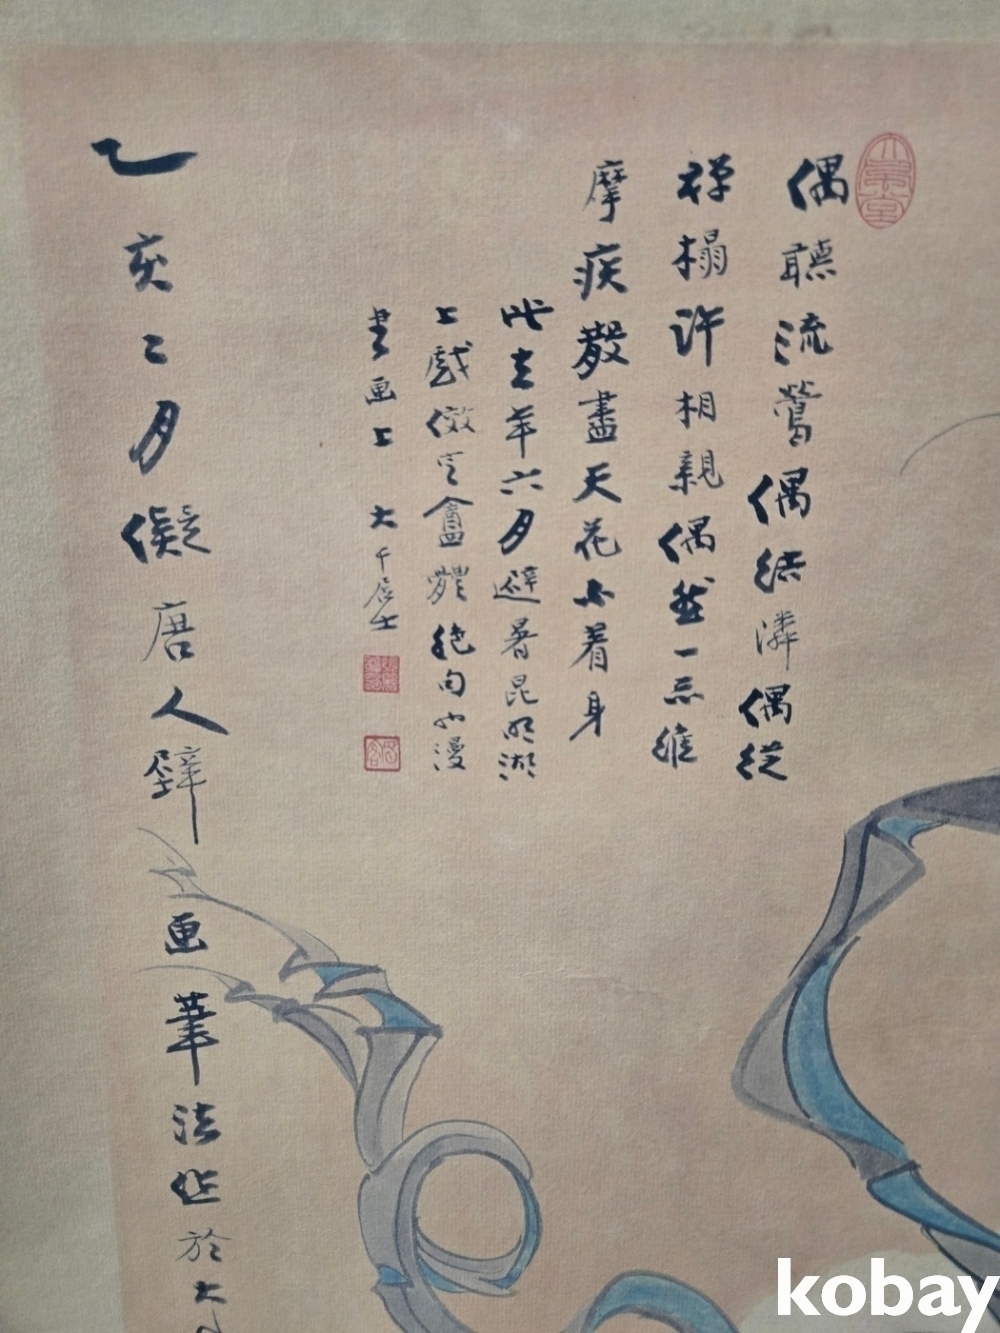 偶聽流鶯偶結憐偶從
禪榻許相親偶然一示維
摩疾散盡天花不着身
此去年六月避暑昆明湖
上戲傚定盦體絕句也漫
書画上 大千居士
乙亥二月儗唐人壁画筆法作於大
kobay